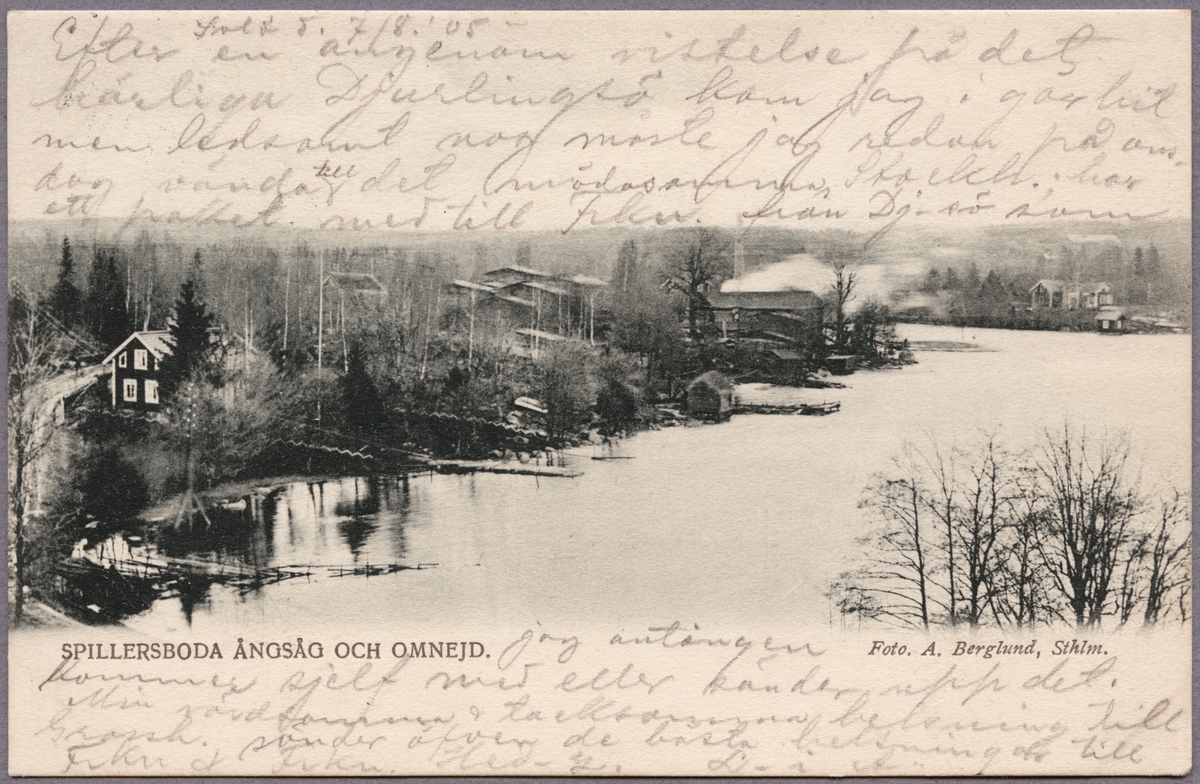 d. 7/8.'05
Efter en angenäm vistelse på det
härliga Djurlingsö kom jag i går hit
men ledsamt nog måste jag redan på ons-
dag vända till det mödosamma Stockh. har
ett paket med till Frkn. från Dj-sö som
jag antingen
SPILLERSBODA ÅNGSÅG OCH OMNEJD.
Foto. A. Berglund, Sthlm.
kommer sjelf med eller sänder upp det.
Min vördsamma & tacksamma helsning till
Grossh. sänder äfven de bästa helsningar till
Frkn & Frkn. Hed-g.